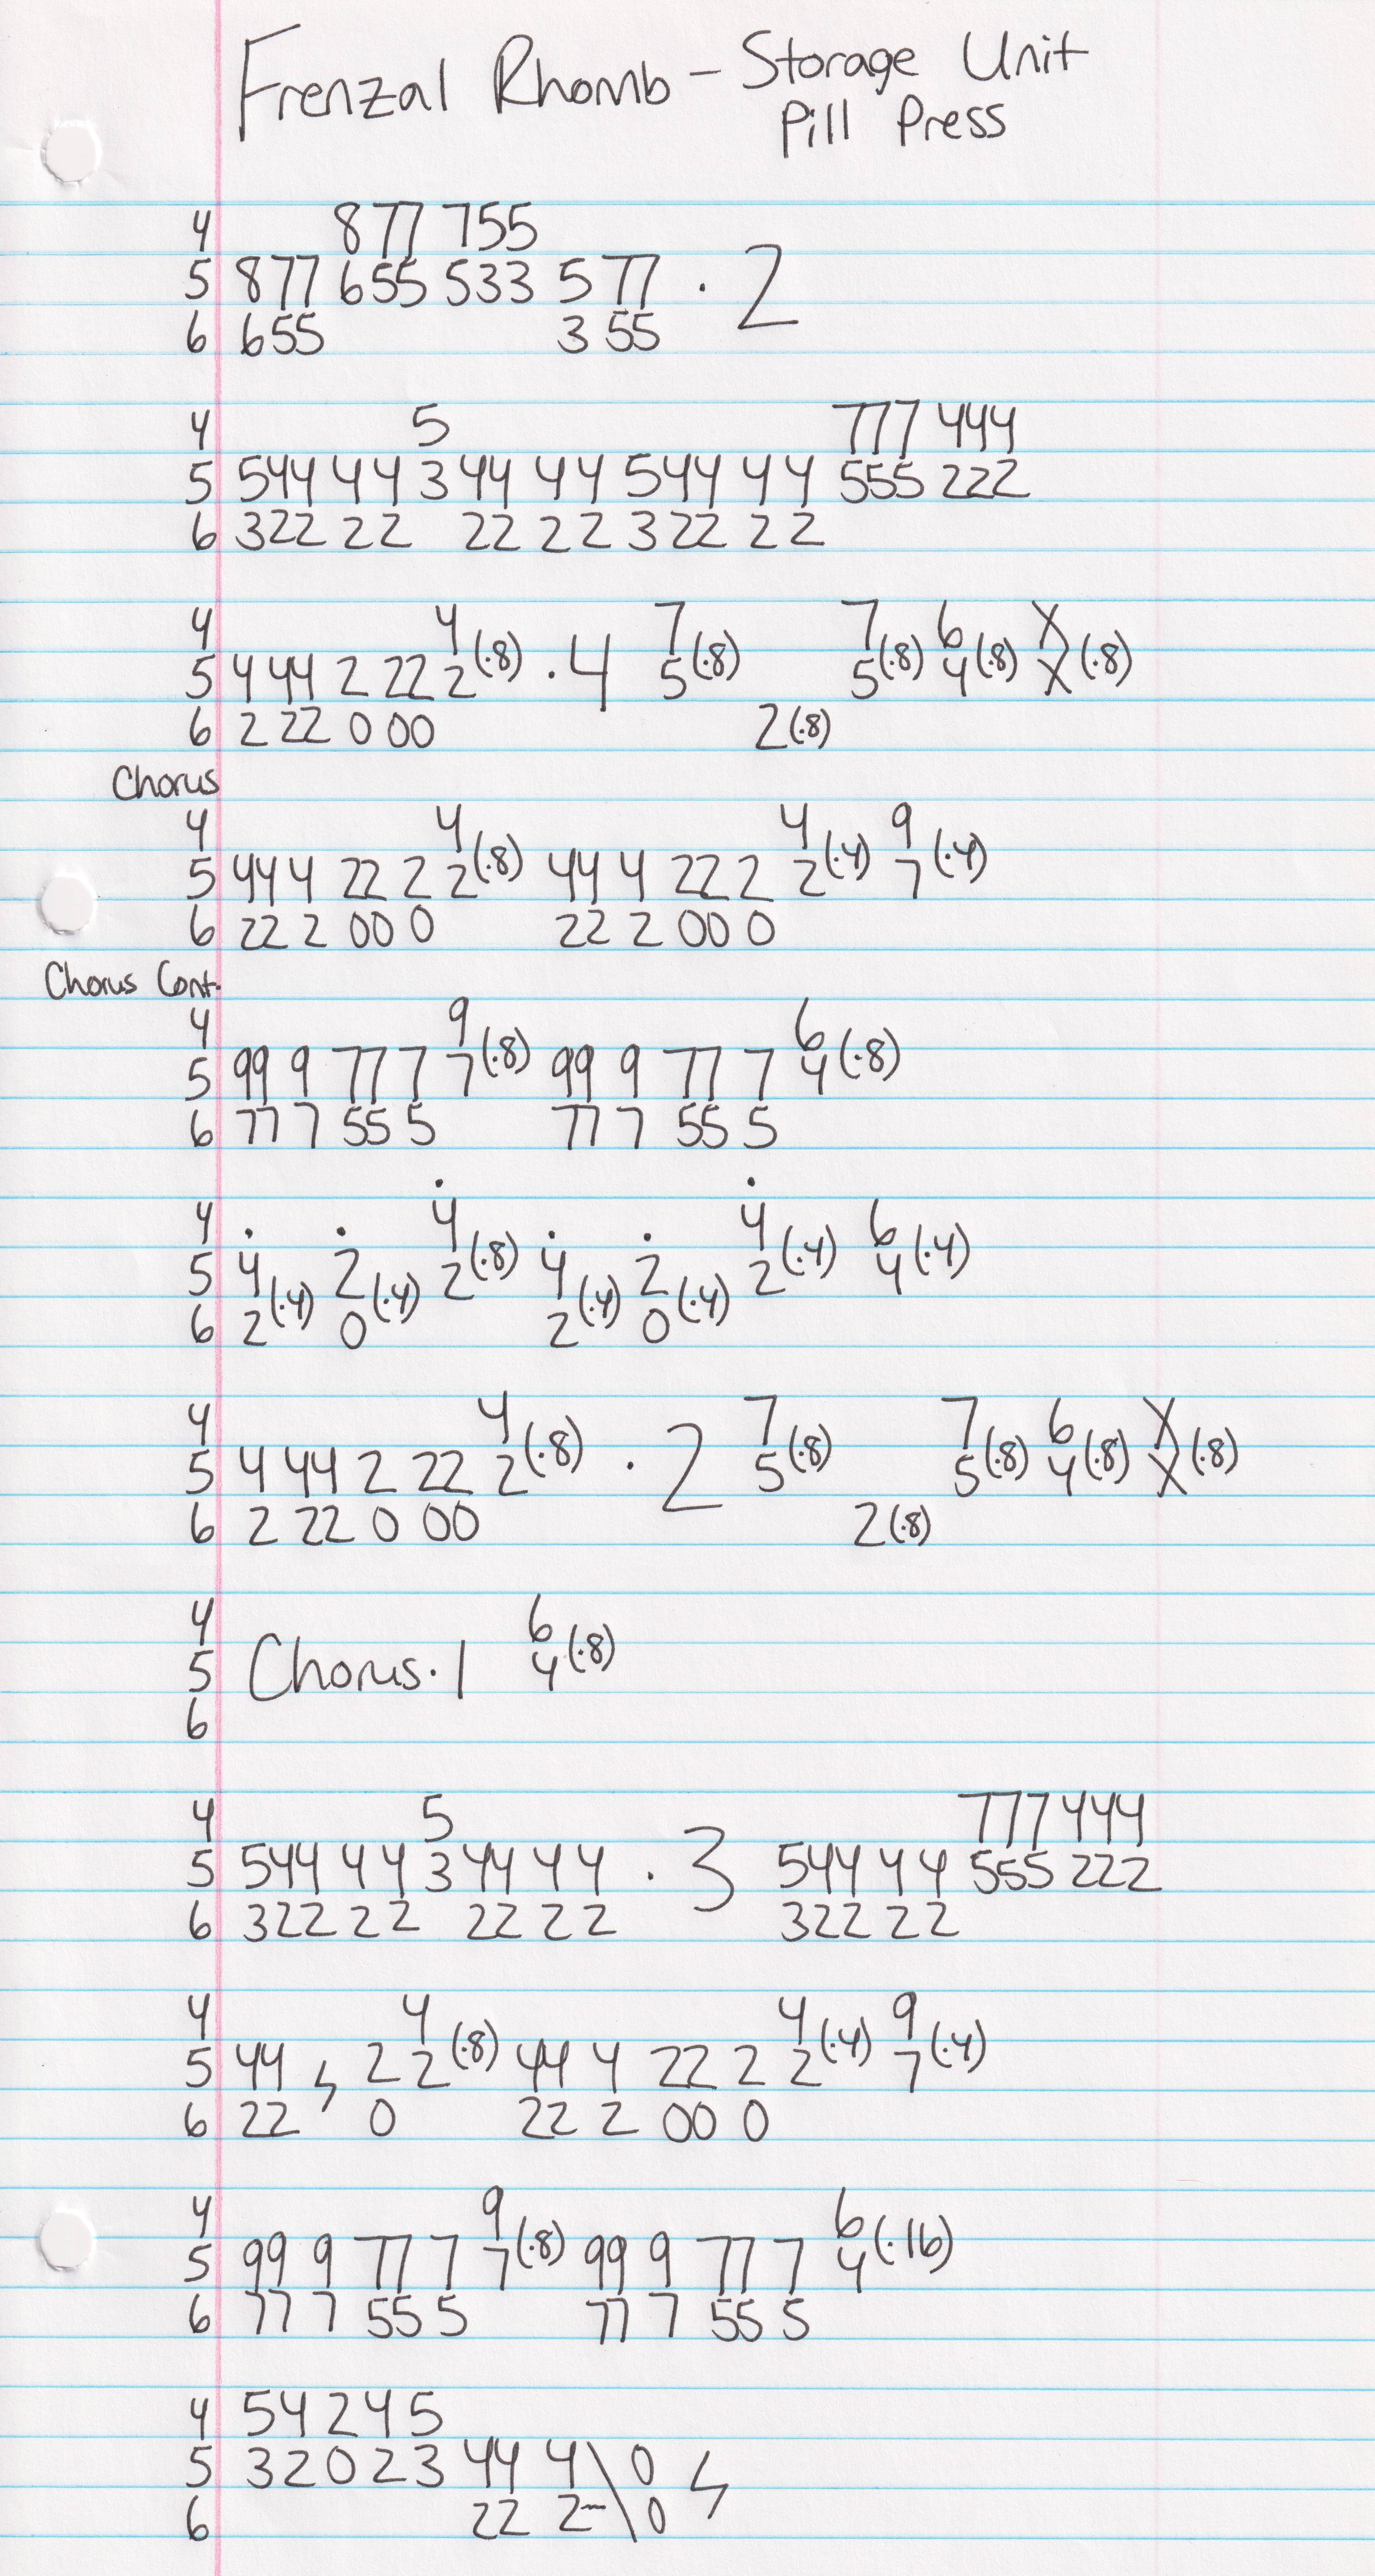 Frenzal Rhomb - Storage Unit
Pill Press
4 877 755
5 877 655 533 5 77 · 2
6 655 3 55
4 5 777 444
5 544 4 4 3 44 4 4 544 4 4 555 222
6 322 2 2 22 2 2 3 22 2 2
4 4 7 7 6 X
5 4 44 2 22 2 (·8) · 4 5 (·8) 5 (·8) 4 (·8) X (·8)
6 2 22 0 00 2 (·8)
Chorus
4 4 4 9
5 44 4 22 2 2 (·8) 44 4 22 2 2 (·4) 7 (·4)
6 22 2 00 0 22 2 00 0
Chorus Cont.
4 9 6
5 99 9 77 7 7 (·8) 99 9 77 7 4 (·8)
6 77 7 55 5 77 7 55 5
4 4 4 6
5 4 2 2 (·8) 4 2 2 (·4) 4 (·4)
6 2 (·4) 0 (·4) 2 (·4) 0 (·4)
4 4 7 7 6 X
5 4 44 2 22 2 (·8) · 2 5 (·8) 5 (·8) 4 (·8) X (·8)
6 2 22 0 00 2 (·8)
4 6
5 Chorus · 1 4 (·8)
6
4 5 777 444
5 544 4 4 3 44 4 4 · 3 544 4 4 555 222
6 322 2 2 22 2 2 322 2 2
4 4 4 9
5 44 2 2 (·8) 44 4 22 2 2 (·4) 7 (·4)
6 22 0 22 2 00 0
4 9 6
5 99 9 77 7 7 (·8) 99 9 77 7 4 (·16)
6 77 7 55 5 77 7 55 5
4 5 4 2 4 5
5 3 2 0 2 3 44 4 \ 0
6 22 2~ \ 0